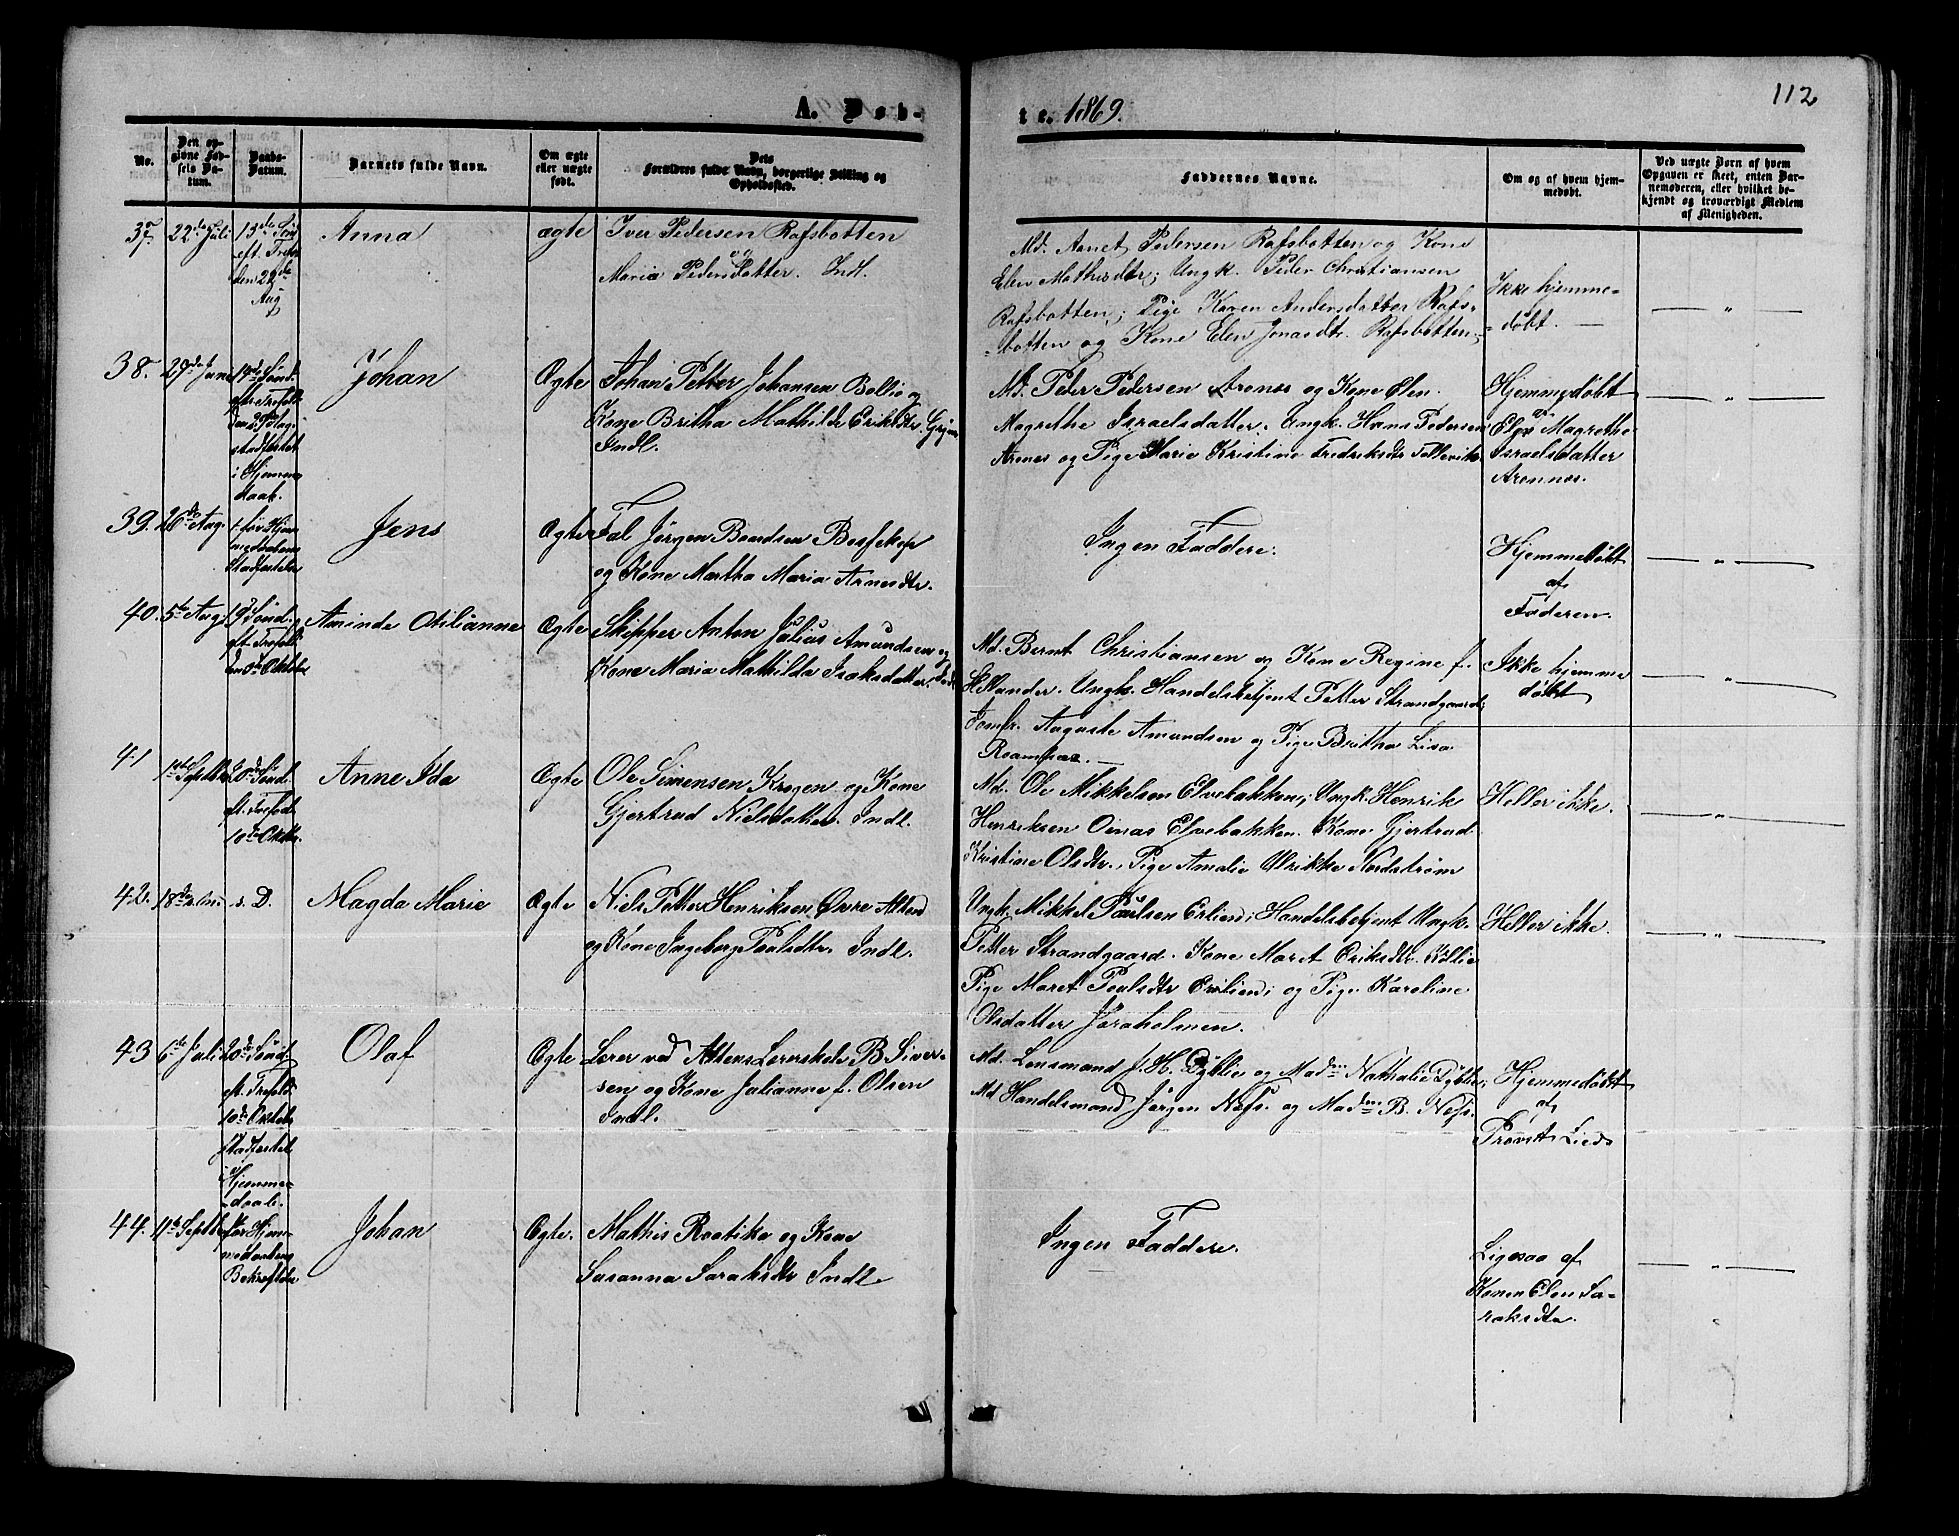 112
A. Døb-
te. 1869.
No.
Den op-
givne Fød-
sels Da-
tum.
Daabs-
Datum.
Barnets fulde Navn.
Om ægte
eller uægte
født.
Dets
Forældres fulde Navn, borgerlige Stilling og
Opholdssted.
Faddernes Navne.
Om og af hvem hjem-
medøbt.
Ved uægte Børn af hvem
Opgaven er skeet, enten Bar-
nemoderen, eller hvilket be-
kjendt og troværdigt Medlem
af Menigheden.
37. 22de Juli
13de Sønd
eft. Trefol
den 22de
Aug
Anna
ægte
Iver Pedersen Rafsbotten
og
Maria Pedersdatter. Indl.
Md. Arnet Pedersen Rafsbotten og Kone
Elen Mathisdtr; Ungk. Peder Christiansen
Rafsbotten; Pige Karen Andersdatter Rafs-
-botten og Kone Elen Jonasdtr. Rafsbotten.
Ikke hjemme-
-døbt. —
— " —
38. 29de Juni
19de Sønd.
eftr. Trefold
stadfestet
i Hjemme
daab.
Johan
Ægte
Johan Petter Johansen Bollio og
Kone Britha Mathilde Eriksdtr.
Indl.
Md. Peder Pedersen Aronnes og Kone Elen
Magrethe Israelsdatter. Ungk. Hans Pedersen
Aronnes og Pige Marie Kristine Fredriksdtr Tallevik.
Hjemmedøbt
af
Elen Magrethe
Israelsdatter
Aronnes.
— " —
39. 26de Aug.
for Hjem
medaaben
Stadfestelse
Jens
Ægte
Fal Jørgen Baardsen Bossekop
og Kone Martha Maria Arnesdtr.
Ingen Faddere.
Hjemmedøbt
af
Faderen.
— " —
40. 5te Aug.
19de Sønd.
eft. Trefold
den 3de Oktobr
Aminde Otilianne
Ægte
Skipper Anton Julius Amundsen og
Kone Maria Mathilda Isaksdatter. Indl.
Md. Bernt Christiansen og Kone Regine f.
Hellander. Ungk. Handelsbetjent Petter Strandgaard;
Jomfr. Auguste Amundsen og Pige Britha Lisa
Raampaa. —
Ikke hjemme
døbt
— " —
41
1ste Septbr
20de Sønd.
eft. Trefold
10de Oktbr.
Anne Ida
Ægte
Ole Simensen Krogen og Kone
Gjertrud Nielsdatter. Indl.
Md. Ole Mikkelsen Elvebakken; Ungk. Henrik
Henriksen Oinas Elvebakken. Kone Gjertrud
Kristine Olsdtr.; Pige Amalie Ulrikke Nordstrøm
Heller ikke.
— " —
42. 18de
s. D.
Magda Marie
Ægte
Niels Petter Henriksen Øvre Alten
og Kone Ingeborg Poalsdtr. Indl.
Ungk. Mikkel Paulsen Erlien; Handelsbetjent Ungk.
Petter Strandgaard. Kone Maret Eriksdtr.
Pige Maret Poalsdtr Erlien; og Pige Karoline
Olsdatter Jøraholmen.
Heller ikke
— " —
43 6te Juli
20de Sønd.
eft. Trefold
10de Oktobr
stadfestet
i
Hjemme-
-daab.
Olaf
Ægte
Lærer ved Altens Lærerskole B. Siver-
sen og Kone Julianne f. Olsen
Indl.
Md. Lensmand J. H. Dyblie og Madm Nathalie Dyblie;
Md Handelsmand Jørgen Næss. og Madm. B. Næss.
Hjemmedøbt
af
Provst Lieds
44. 11te Septbr
for Hjem-
medaabens
Bekræftelse
Johan
Ægte.
Mathis Raatika og Kone
Susanna Saraksdtr Indl.
Ingen Faddere.
Ligesaa af
Konen Elen Sa-
raksdtr.
— " —